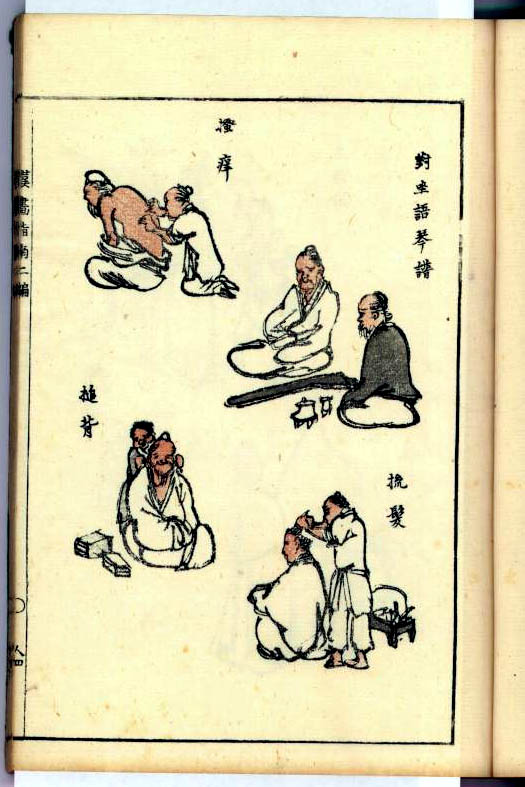 對坐語琴譜
搔痒
梳髮
搥背
漢畫指南二編
人四